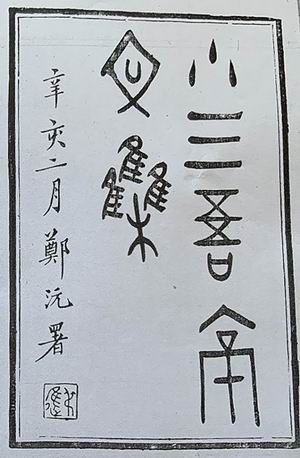 小三吾亭
文雧
辛亥二月鄭沅署
叔進